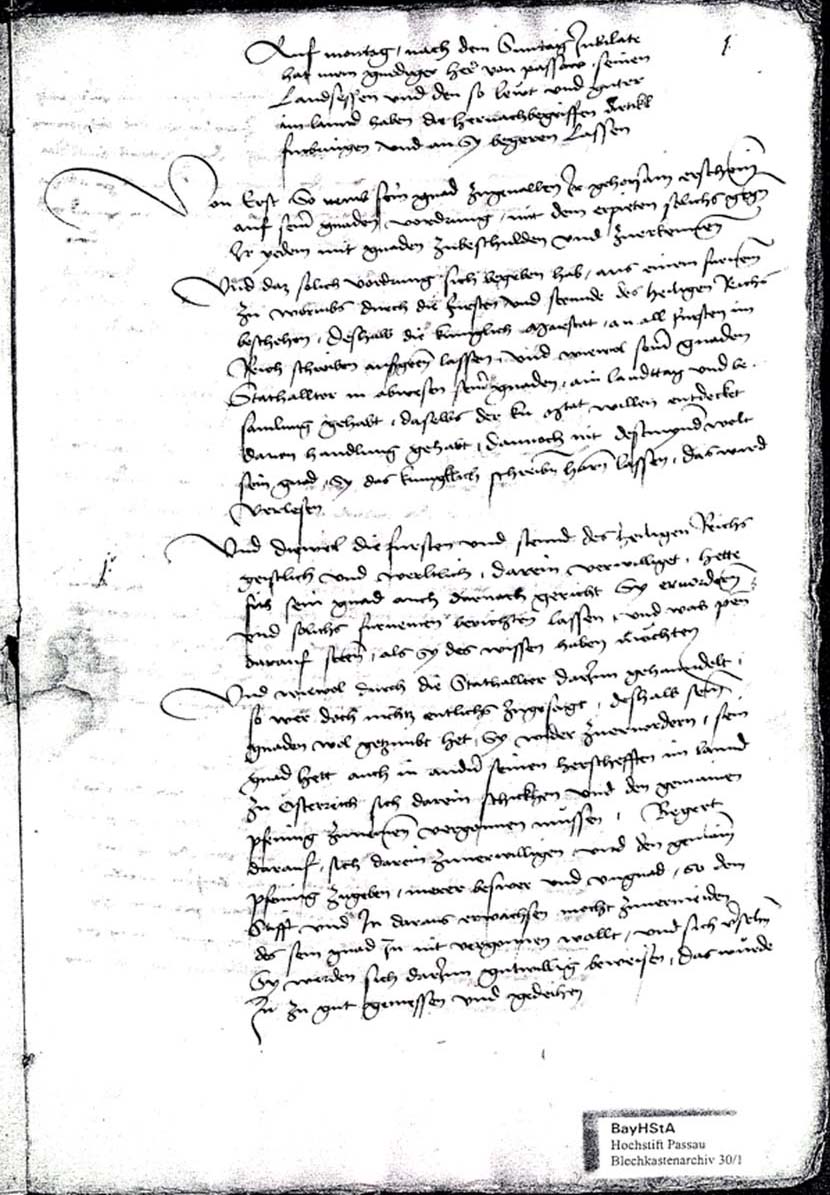 1
Auf montag nach dem Sunntag Jubilate
hat mein gnediger her von passaw seinen
Landsessen und den so lewt und gueter
im lannd haben die hernachbegriffen Artickl
furbringen und an sy begeren Lassen
Von Erst So wend sein gnad zugenallen Ir gehorsam erscheinen
auf seiner gnaden vordrung mit dem erpieten solichs gegen
Ir yedem mit gnaden zubeschulden und zuerkennen
Und daz solich vordrung sich begeben hab aus einem furnemen
zu wormbs durch die fursten und stennde des heiligen Reichs
beschehen, deshalb die kuniglich Maiestat an all fursten im
Reich schreiben ausgeen lassen, und wiewol seiner gnaden
Stathallter in abwesen seiner gnaden ain landttag und be-
samlung gehabt, daselbs der ku Mtat willen entdecket
davon handlung gehabt, dannoch nit destmynder wolt
sein gnad, Sy das kuniglich schreiben horen lassen, das ward
verlesen
Und dieweil die fursten und stennd des heiligen Reichs
geistlich und werltlich, darein verwilliget, hette
sich sein gnad auch darnach gericht Sy ervordern
und solichs furnemen berichten lassen, und was pen
darauf steen, als sy des wissen haben mochten
Und wiewol durch die Stathallter darinn gehanndelt,
so wer doch nichtz entlichs zugesagt, deshalb sein
gnaden wol getzimbt het, Sy wider zuervordern, sein
gnad hett auch in andern seinen herschefften im lannd
zu Osterreich sich darein schickhen und den gemainen
pfening zunemen vergonnen muessen, Begert
darauf, sich darein zuverwilligen und den gemain
pfening zugeben, merer beswer und ungnad, so dem
Stifft und In daraus erwachsen mocht zuvermeiden
des sein gnad In nit vergonnen wollt, und sich versehen
Sy werden sich darinn gutwillig beweisen, das wurde
In zu gut gemessen und gedeihen
BayHStA
Hochstift Passau
Blechkastenarchiv 30/1